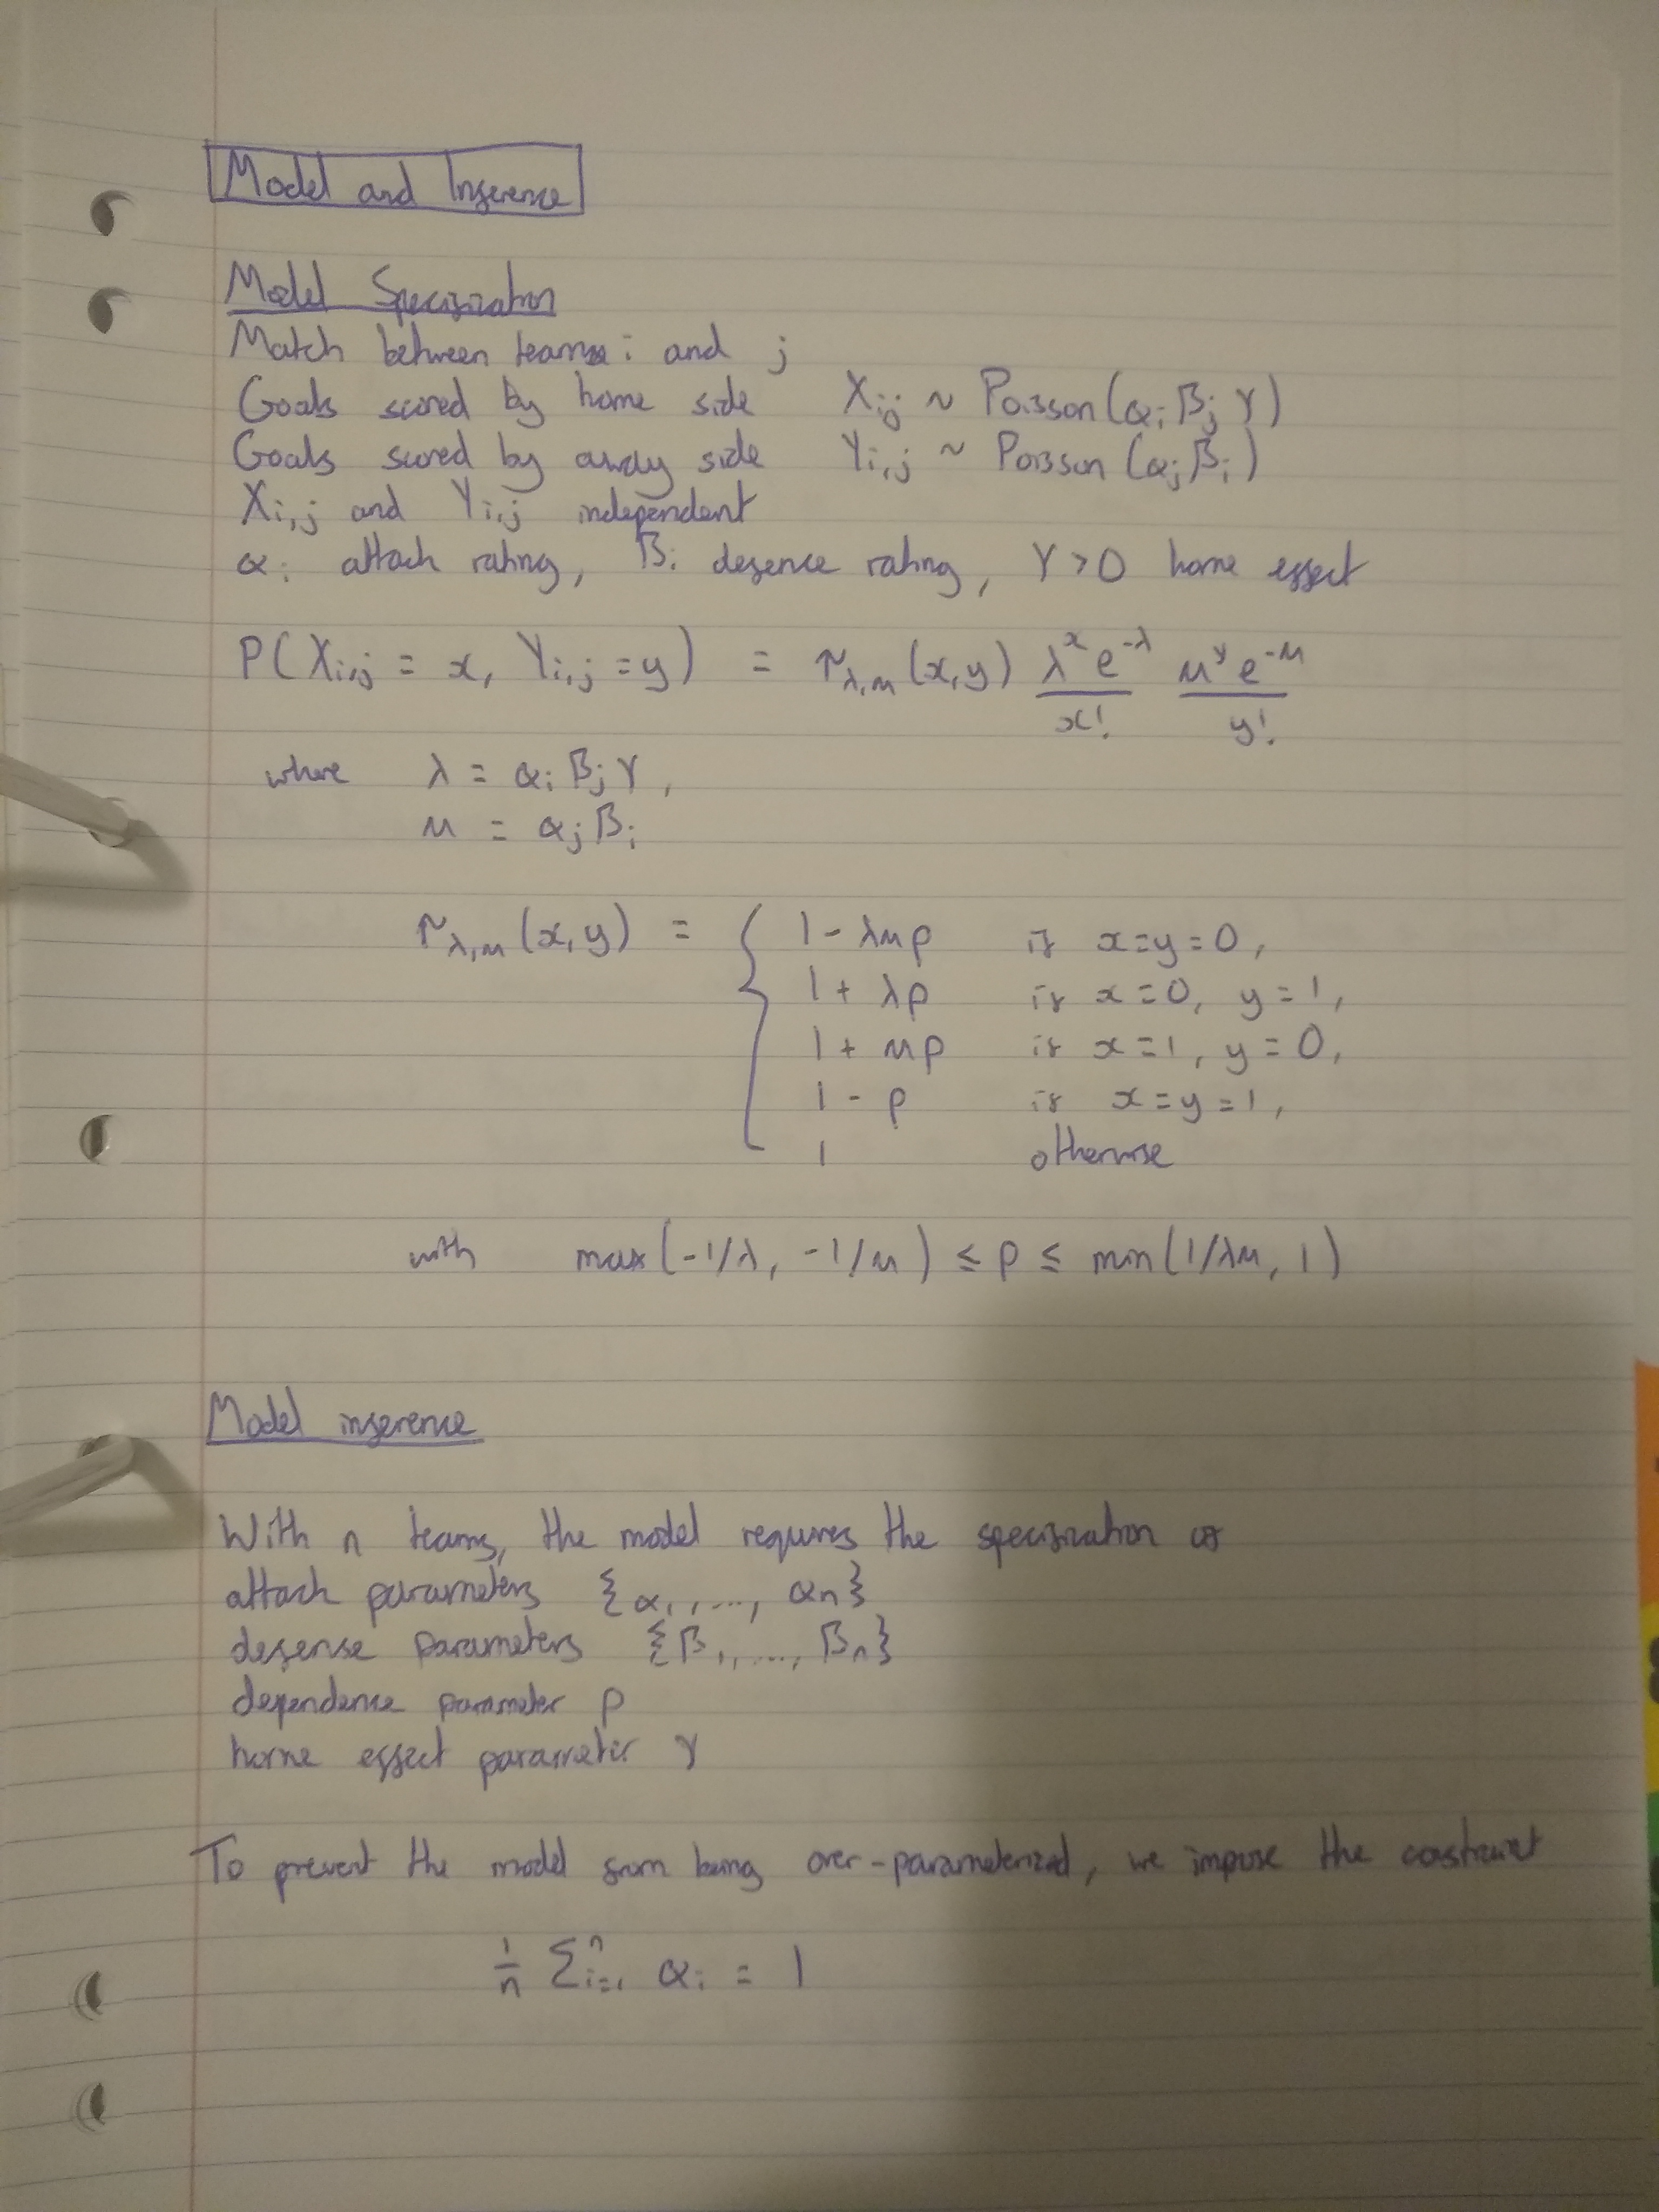 Model and Inference
Model Specification
Match between teams i and j
Goals scored by home side X_ij ~ Poisson(α_i β_j γ)
Goals scored by away side Y_i,j ~ Poisson(α_j β_i)
X_i,j and Y_i,j independent
α_i attack rating, β_i defence rating, γ > 0 home effect
P(X_i,j = x, Y_i,j = y) = τ_λ,μ(x,y) λ^x e^-λ / x! μ^y e^-μ / y!
where λ = α_i β_j γ,
μ = α_j β_i
τ_λ,μ(x,y) = { 1 - λμρ if x=y=0,
1 + λρ if x=0, y=1,
1 + μρ if x=1, y=0,
1 - ρ if x=y=1,
1 otherwise
with max(-1/λ, -1/μ) ≤ ρ ≤ min(1/λμ, 1)
Model inference
With n teams, the model requires the specification of
attack parameters {α_1, ..., α_n}
defense parameters {β_1, ..., β_n}
dependence parameter ρ
home effect parameter γ
To prevent the model from being over-parameterized, we impose the constraint
1/n Σ_i=1^n α_i = 1